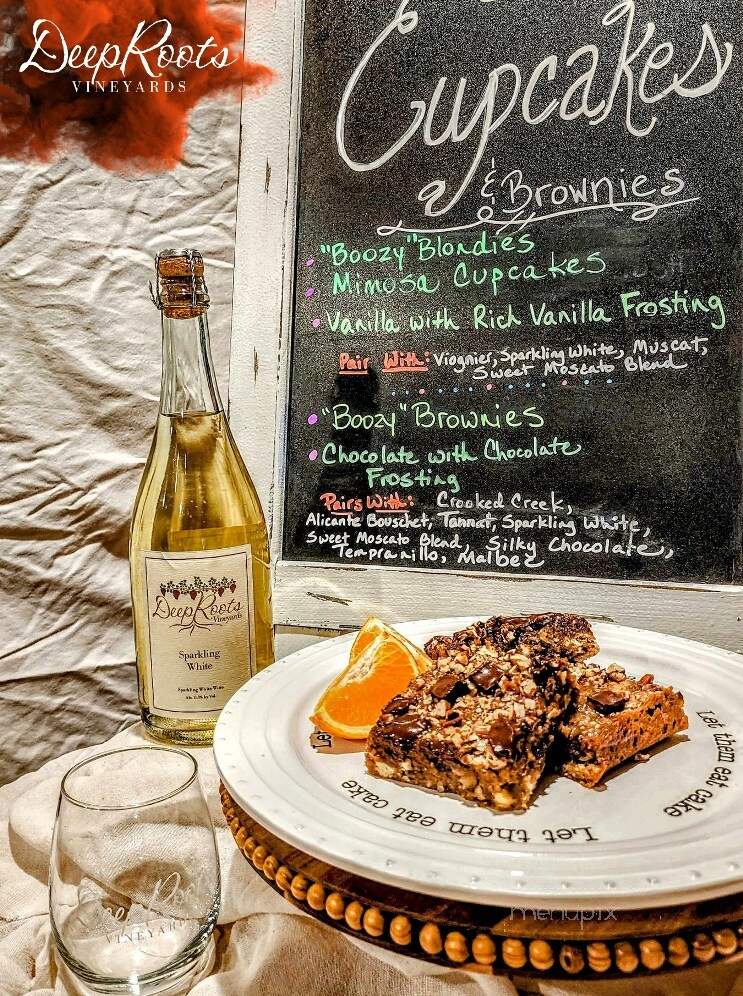 DeepRoots
VINEYARDS
Cupcakes
& Brownies
"Boozy" Blondies
Mimosa Cupcakes
Vanilla with Rich Vanilla Frosting
Pair With: Viognier, Sparkling White, Muscat,
Sweet Moscato Blend
"Boozy" Brownies
Chocolate with Chocolate
Frosting
Pairs With: Crooked Creek,
Alicante Bouschet, Tannat, Sparkling White,
Sweet Moscato Blend, Silky Chocolate,
Tempranillo, Malbec
DeepRoots
Vineyards
Sparkling
White
Sparkling White Wine
Let them eat cake
Let them eat cake
Let
DeepRoots
VINEYARDS
menupix